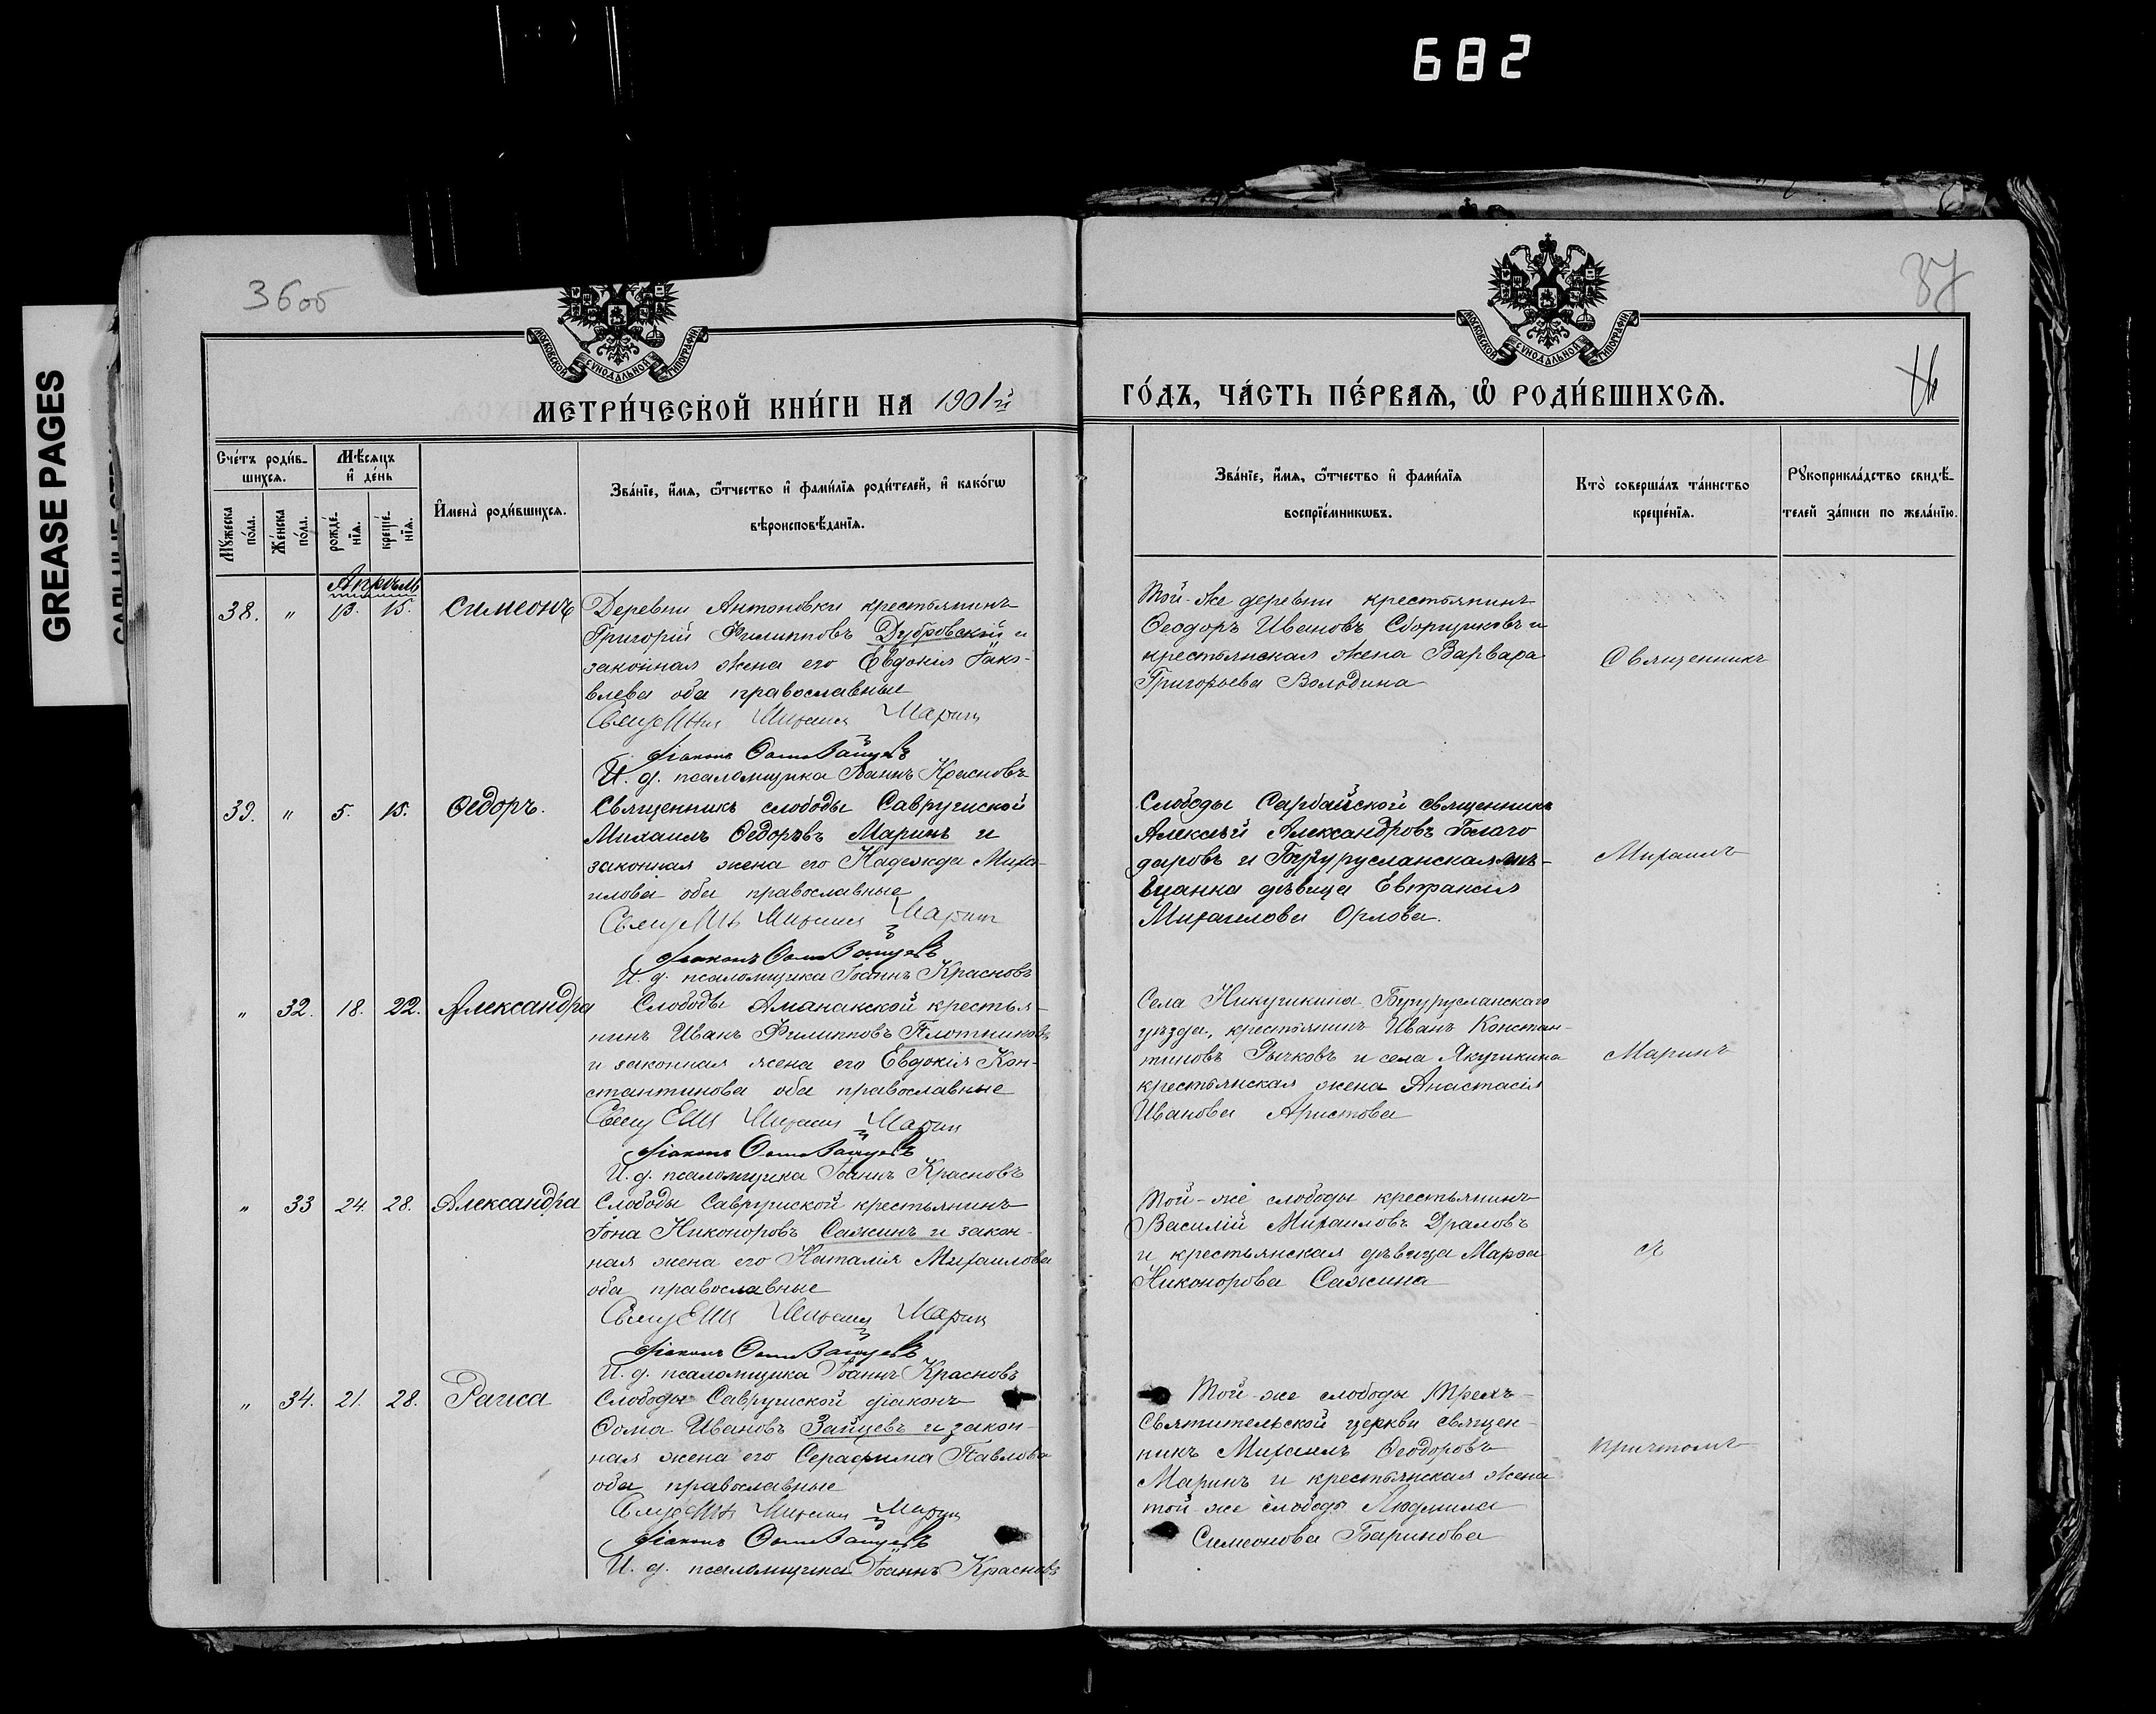 682
GREASE PAGES
36об
37
МОСКОВСКОЙ СѴНОДАЛЬНОЙ ТИПОГРАФІИ
МОСКОВСКОЙ СѴНОДАЛЬНОЙ ТИПОГРАФІИ
МЕТРИ́ЧЕСКОЙ КНИ́ГИ НА 1901й
ГО́ДЪ, ЧА́СТЬ ПЕ́РВАѦ, Ѽ РОДИ́ВШИХСѦ.
Сче́тъ роди́в-
шихсѧ.
Мѣ́сѧцъ
и҆ де́нь
Мꙋ́жеска
по́ла.
Же́нска
по́ла.
рожде́-
нїѧ.
креще́-
нїѧ.
И҆мена̀ роди́вшихсѧ.
Зва́нїе, и҆́мѧ, ѻ҆́тчество и҆ фами́лїѧ роди́телей, и҆ како́гѡ
вѣроисповѣ́данїѧ.
Зва́нїе, и҆́мѧ, ѻ҆́тчество и҆ фами́лїѧ
воспрїе́мникѡвъ.
Кто̀ соверша́лъ та́инство
креще́нїѧ.
Рꙋкоприкла́дство свидѣ́-
телей за́писи по жела́нїю.
Апрѣль
38. " 13. 15. Симеонъ
Деревни Антоновки крестьянинъ
Григорій Филипповъ Дубровскій и
законная жена его Евдокія Іако-
влева оба православные
Михаил Марин
Діаконъ Ѳома Зайцевъ
И. д. псаломщика Іоаннъ Красновъ
Той-же деревни крестьянинъ
Ѳеодоръ Ивановъ Сборщиковъ и
крестьянская жена Варвара
Григорьева Володина
Священникъ
39. " 5. 15. Ѳедоръ.
Священникъ слободы Саврушской
Михаилъ Ѳедоровъ Маринъ и
законная жена его Надежда Миха-
илова оба православные
Михаил Марин
Діаконъ Ѳома Зайцевъ
И. д. псаломщика Іоаннъ Красновъ
Слободы Сарбайской священникъ
Алексѣй Александровъ Благо
даровъ и Бугурусланская мѣ-
щанка дѣвица Евпраксія
Михаилова Орлова.
Михаилъ
" 32. 18. 22. Александра
Слободы Аманакской крестья-
нинъ Иванъ Филипповъ Плотниковъ
и законная жена его Евдокія Кон-
стантинова оба православные
Михаил Марин
Діаконъ Ѳома Зайцевъ
И. д. псаломщика Іоаннъ Красновъ
Села Никушкина Бугурусланскаго
уѣзда, крестьянинъ Иванъ Констан-
тиновъ Рычковъ и села Якушкина
крестьянская жена Анастасія
Иванова Аристова
Маринъ
" 33 24. 28. Александра
Слободы Савруш­ской крестьянинъ
Іона Никоноровъ Сажинъ и закон-
ная жена его Наталія Михаилова
оба православные
Михаил Марин
Діаконъ Ѳома Зайцевъ
И. д. псаломщика Іоаннъ Красновъ
Той-же слободы крестьянинъ
Василій Михаиловъ Драловъ
и крестьянская дѣвица Марѳа
Никонорова Сажина
съ
" 34. 21. 28. Раиса
Слободы Савруш­ской діаконъ
Ѳома Ивановъ Зайцевъ и закон-
ная жена его Серафима Павлова
оба православные
Михаил Марин
Діаконъ Ѳома Зайцевъ
И. д. псаломщика Іоаннъ Красновъ
Той-же слободы Трехъ-
Святительской церкви священ-
никъ Михаилъ Ѳеодоровъ
Маринъ и крестьянская жена
той-же слободы Людмила
Симеонова Баринова
причтомъ